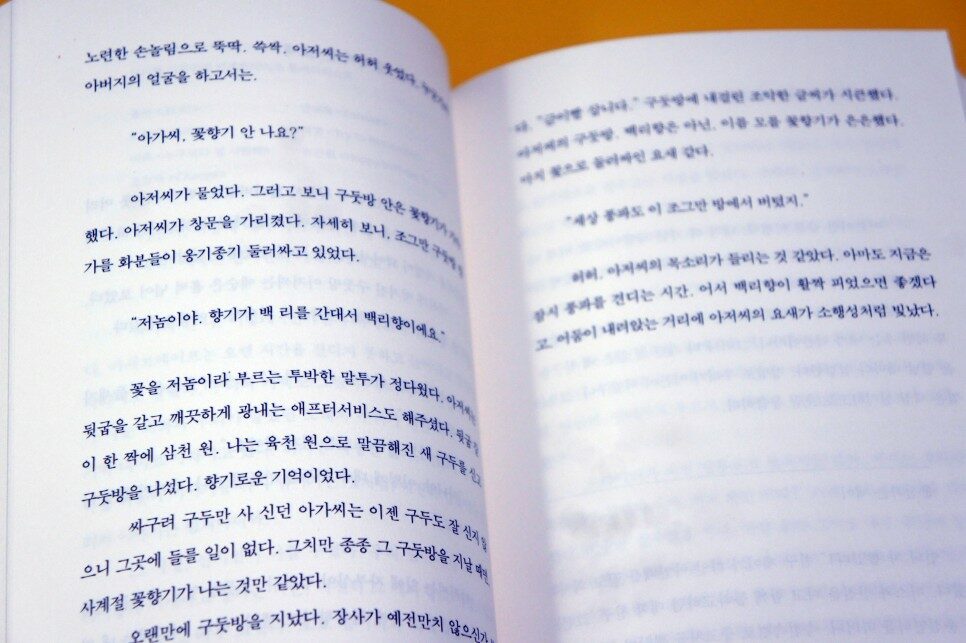 노련한 손놀림으로 뚝딱. 쓱싹. 아저씨는 허허 웃었다.
아버지의 얼굴을 하고서는.
"아가씨, 꽃향기 안 나요?"
아저씨가 물었다. 그러고 보니 구둣방 안은 꽃향기가
했다. 아저씨가 창문을 가리켰다. 자세히 보니, 조그만 구둣방
가를 화분들이 옹기종기 둘러싸고 있었다.
"저놈이야. 향기가 백 리를 간대서 백리향이에요."
꽃을 저놈이라 부르는 투박한 말투가 정다웠다. 아저씨는
뒷굽을 갈고 깨끗하게 광내는 애프터서비스도 해주셨다. 뒷굽
이 한 짝에 삼천 원. 나는 육천 원으로 말끔해진 새 구두를 신고
구둣방을 나섰다. 향기로운 기억이었다.
싸구려 구두만 사 신던 아가씨는 이젠 구두도 잘 신지 않
으니 그곳에 들를 일이 없다. 그치만 종종 그 구둣방을 지날 때면
사계절 꽃향기가 나는 것만 같았다.
오랜만에 구둣방을 지났다. 장사가 예전만치 않으신가
다. "금이빨 삽니다." 구둣방에 내걸린 조악한 글씨가 시큰했다.
아저씨의 구둣방. 백리향은 아닌, 이름 모를 꽃향기가 은은했다.
마치 꽃으로 둘러싸인 요새 같다.
"세상 풍파도 이 조그만 방에서 버텼지."
허허, 아저씨의 목소리가 들리는 것 같았다. 아마도 지금은
잠시 풍파를 견디는 시간. 어서 백리향이 활짝 피었으면 좋겠다
고. 어둠이 내려앉는 거리에 아저씨의 요새가 소행성처럼 빛났다.